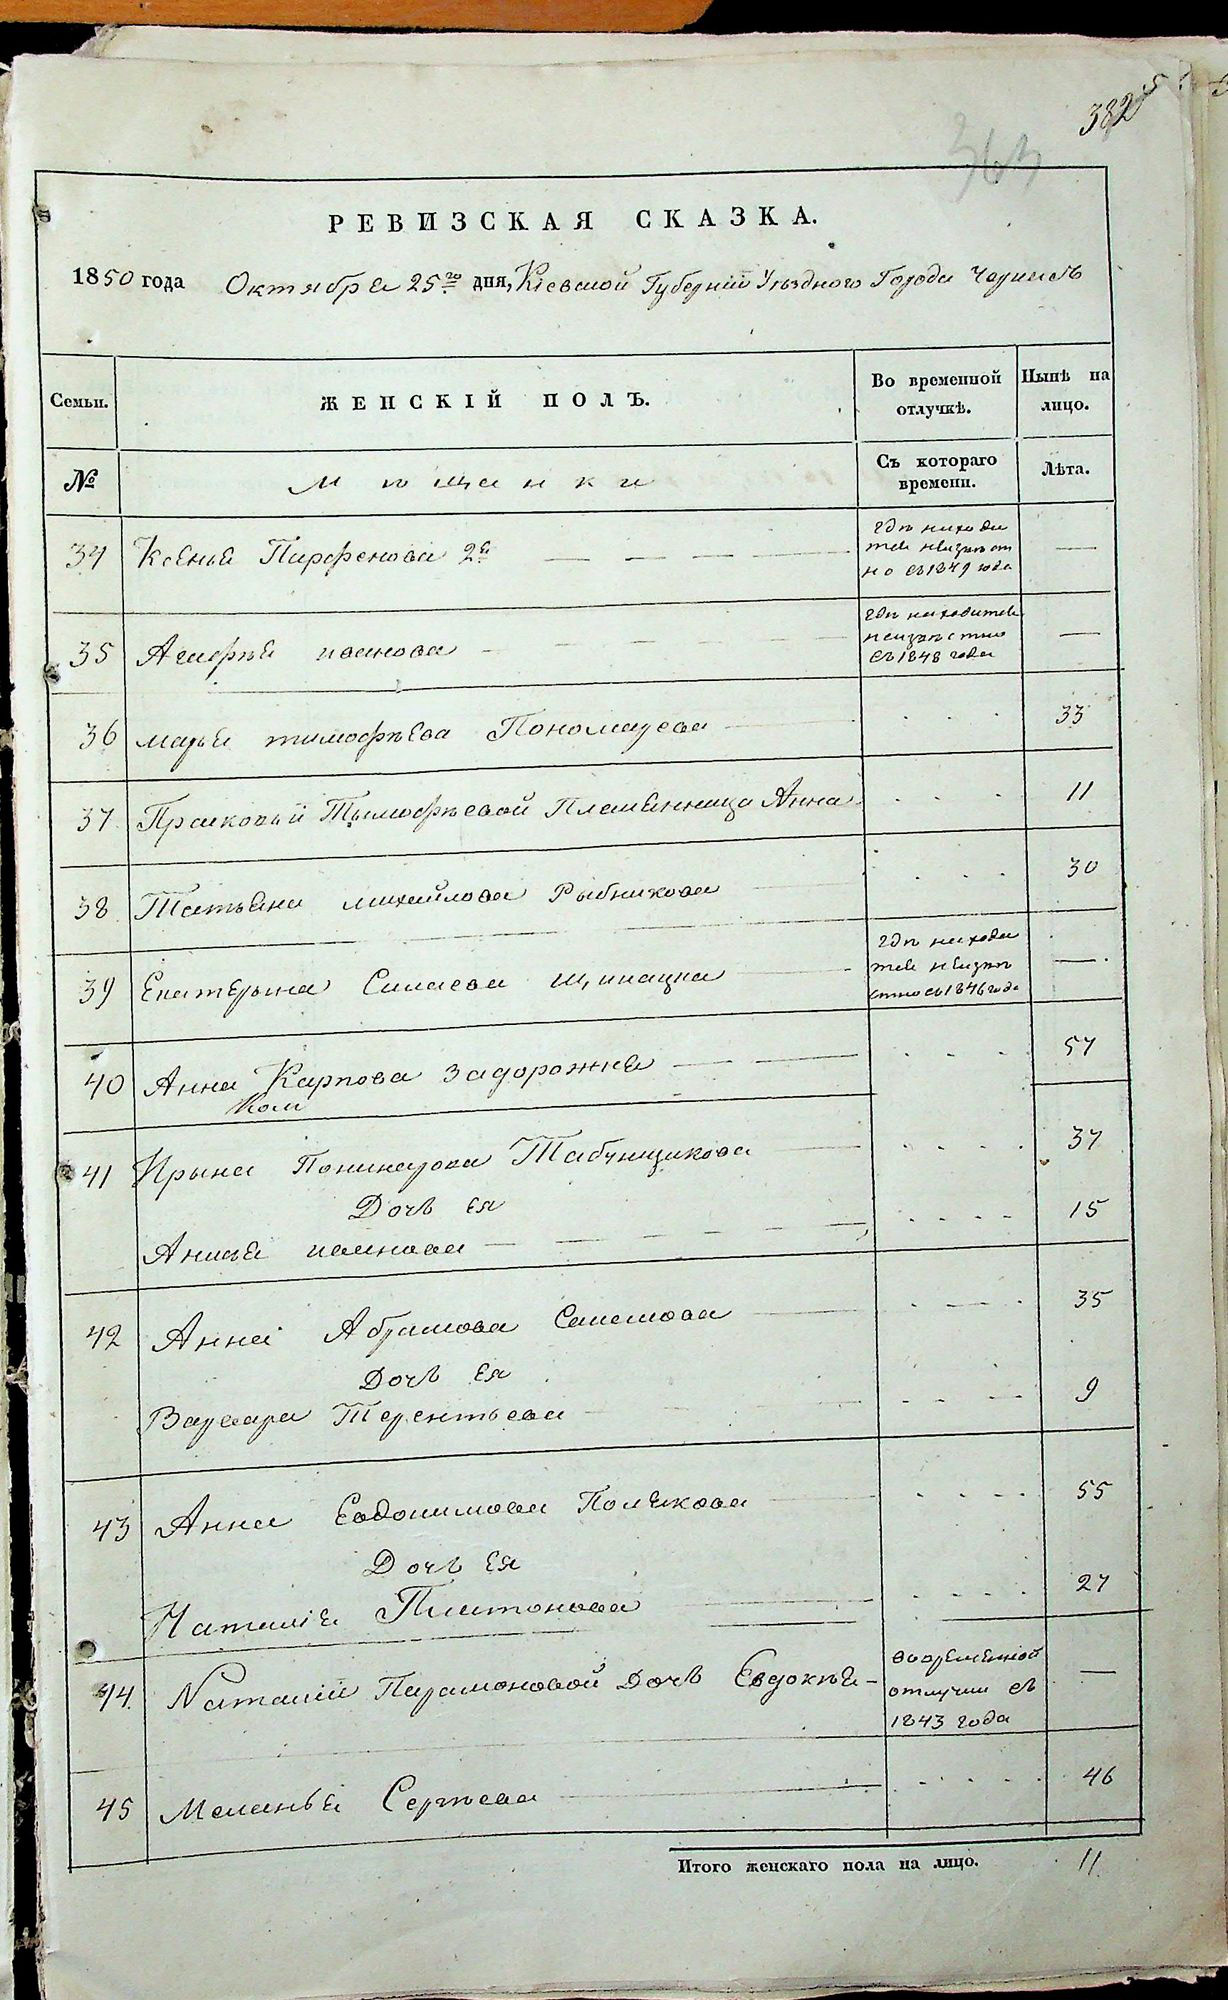 382
363
РЕВИЗСКАЯ СКАЗКА.
1850 года Октября 25го дня, Кіевской Губерніи Уѣзднаго Города
Семьи. ЖЕНСКІЙ ПОЛЪ. Во временной отлучкѣ. Нынѣ на лицо.
№ Мѣщанки Съ котораго времени. Лѣта.
34 Ксенья Парфенова 2я гдѣ находи
тся неизвѣст
но съ 1849 года —
35 Агафья иванова гдѣ находится
неизвѣстно
съ 1848 года —
36 марья тимофѣева Пономарева 33
37 Прасковьи Тымофѣевой Племѣнница Анна 11
38 Татьяна михайлова Рыбникова 30
39 Екатерына Силаева гдѣ находи
тся неизвѣ
стно съ 1846 года —
40 Анна Карпова Задорожня 57
41 Ирына Табунщикова 37
Дочь ея 15
Анисья иванова
42 Анна Абрамова 35
Дочь ея
Варвара Терентьева 9
43 Анна Евдокимова Полякова 55
Дочь ея
Наталія Платонова 27
44 Наталіи Парамоновой Дочь Евдокѣя вовременной
отлучки съ
1843 года —
45 Меланья Сергѣева 46
Итого женскаго пола на лицо. 11